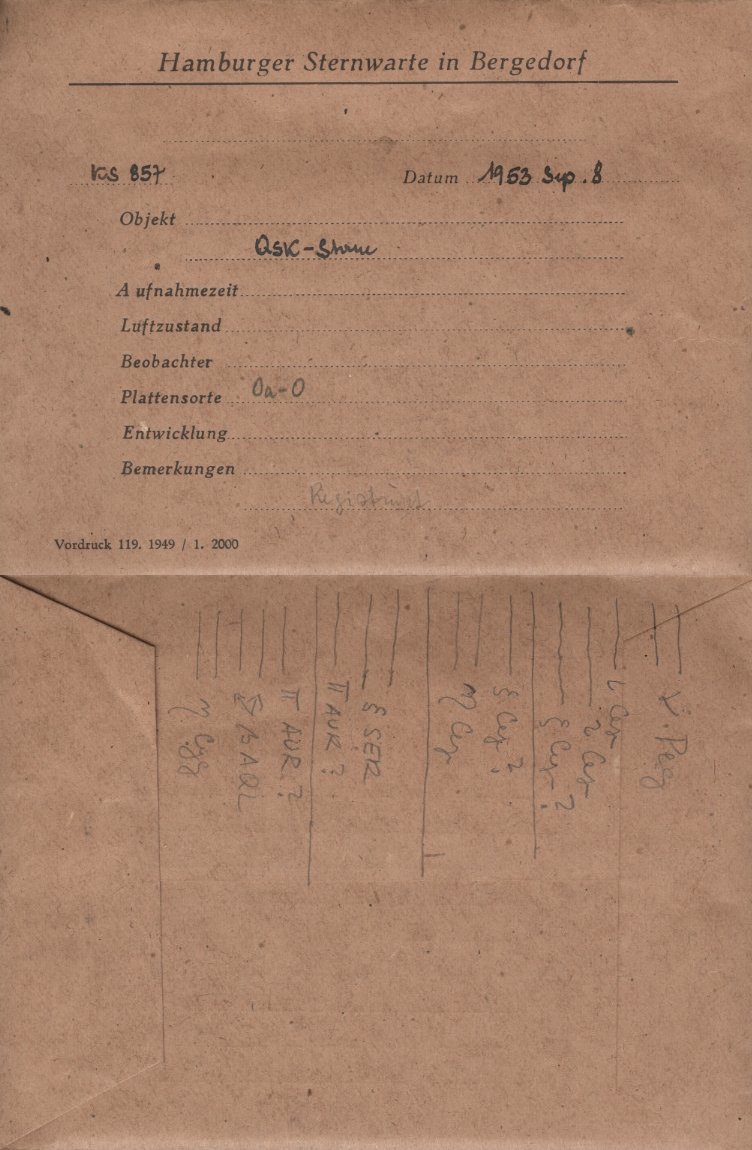 Hamburger Sternwarte in Bergedorf
KS 857 Datum 1953 Sep. 8
Objekt
QSK-Sterne
Aufnahmezeit
Luftzustand
Beobachter
Plattensorte Oa-O
Entwicklung
Bemerkungen
Registriert
Vordruck 119. 1949 / 1. 2000
Peg
ξ Cep ?
ξ Cep ?
η Cep
ξ SER
π AUR ?
π AUR ?
AQL
η Cyg